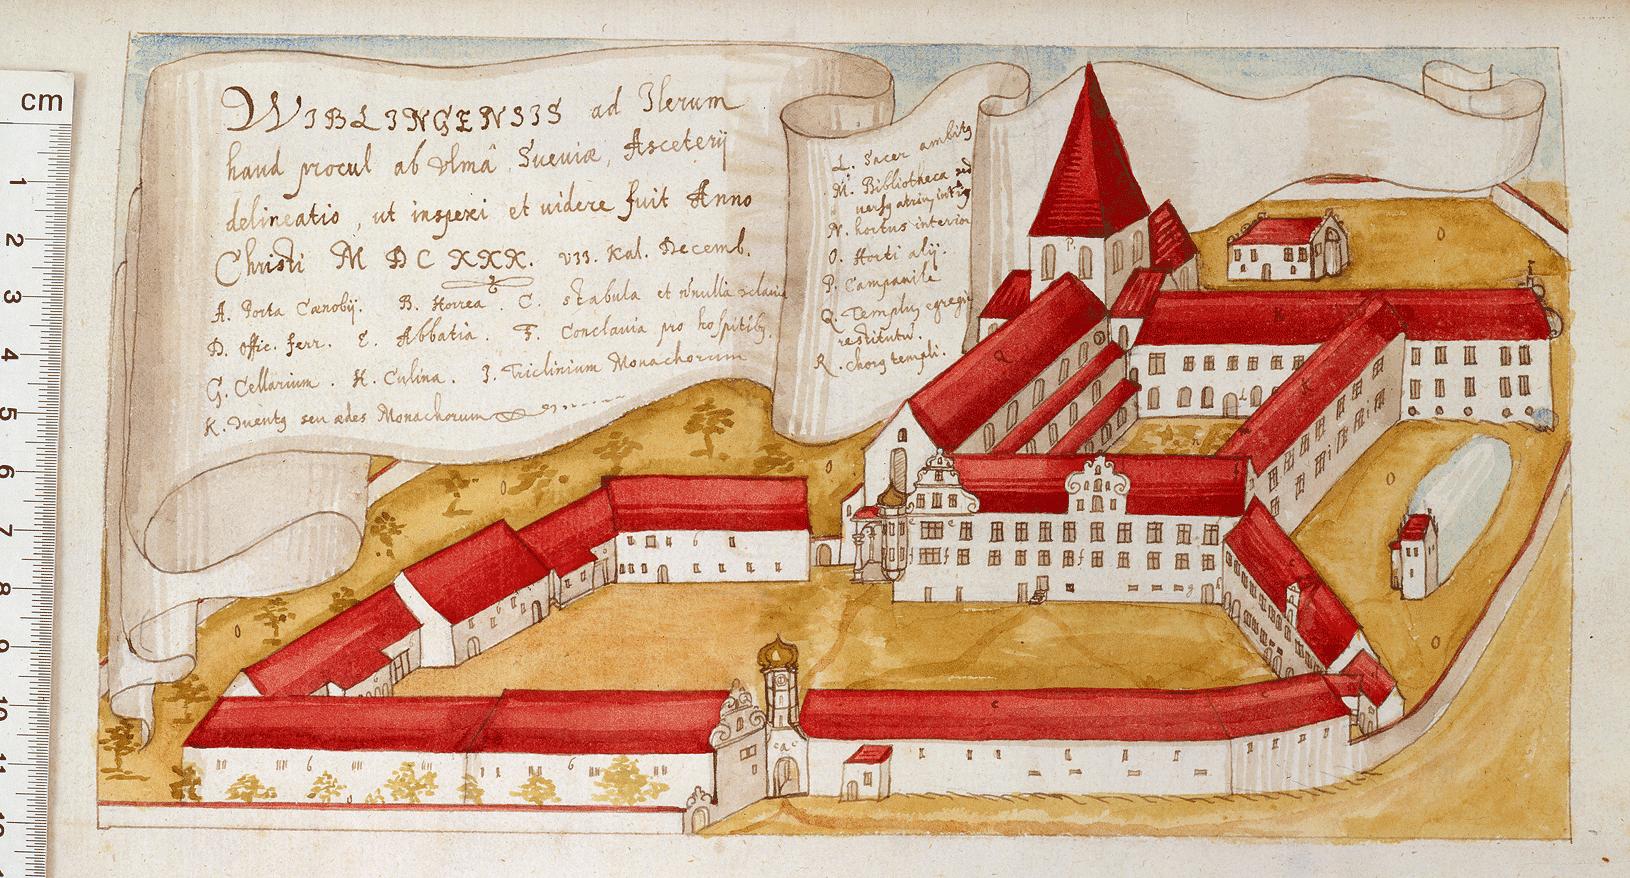 WIBLINGENSIS ad Ilerum
haud procul ab Ulmâ Sueviæ, Asceterij
delineatio, ut inspexi et videre fuit Anno
Christi M DC XXX. VII. Kal. Decemb.
A. Porta Cænobij. B. Horrea. C. stabula et nõnulla
D. Offic. ferr. E. Abbatia. F. Conclavia pro hospitibꝫ.
G. Cellarium. H. Culina. I. Triclinium Monachorum
K. seu ædes Monachorum
L. Sacer ambitꝫ
M. Bibliotheca
N. hortus interior
O. Horti alij.
P. Campanile
Q. Templũ egregiè
restitutũ.
R. chorꝫ templi.
cm
1
2
3
4
5
6
7
8
9
10
11
12